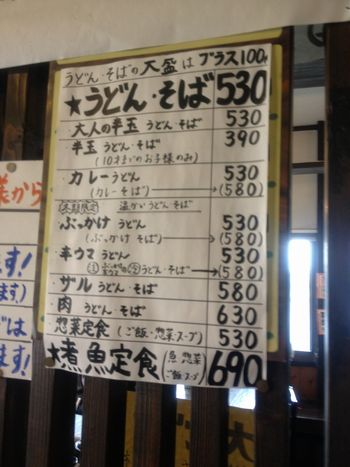 うどん・そばの大盛は プラス100
★うどん・そば 530
・大人の半玉 うどん・そば 530
半玉 うどん・そば 390
(10才までのお子様のみ)
・カレーうどん 530
(カレーそば)→(580)
温かいうどん・そば
・ぶっかけ うどん 530
(ぶっかけ そば)→(580)
・辛ウマ うどん 530
うどん・そば→(580)
・ザル うどん・そば 580
・肉 うどん・そば 630
・惣菜定食 (ご飯・惣菜・スープ) 530
★煮魚定食 (魚 惣菜 ご飯・スープ) 690
菜から
ます!
ます)
では
ます!